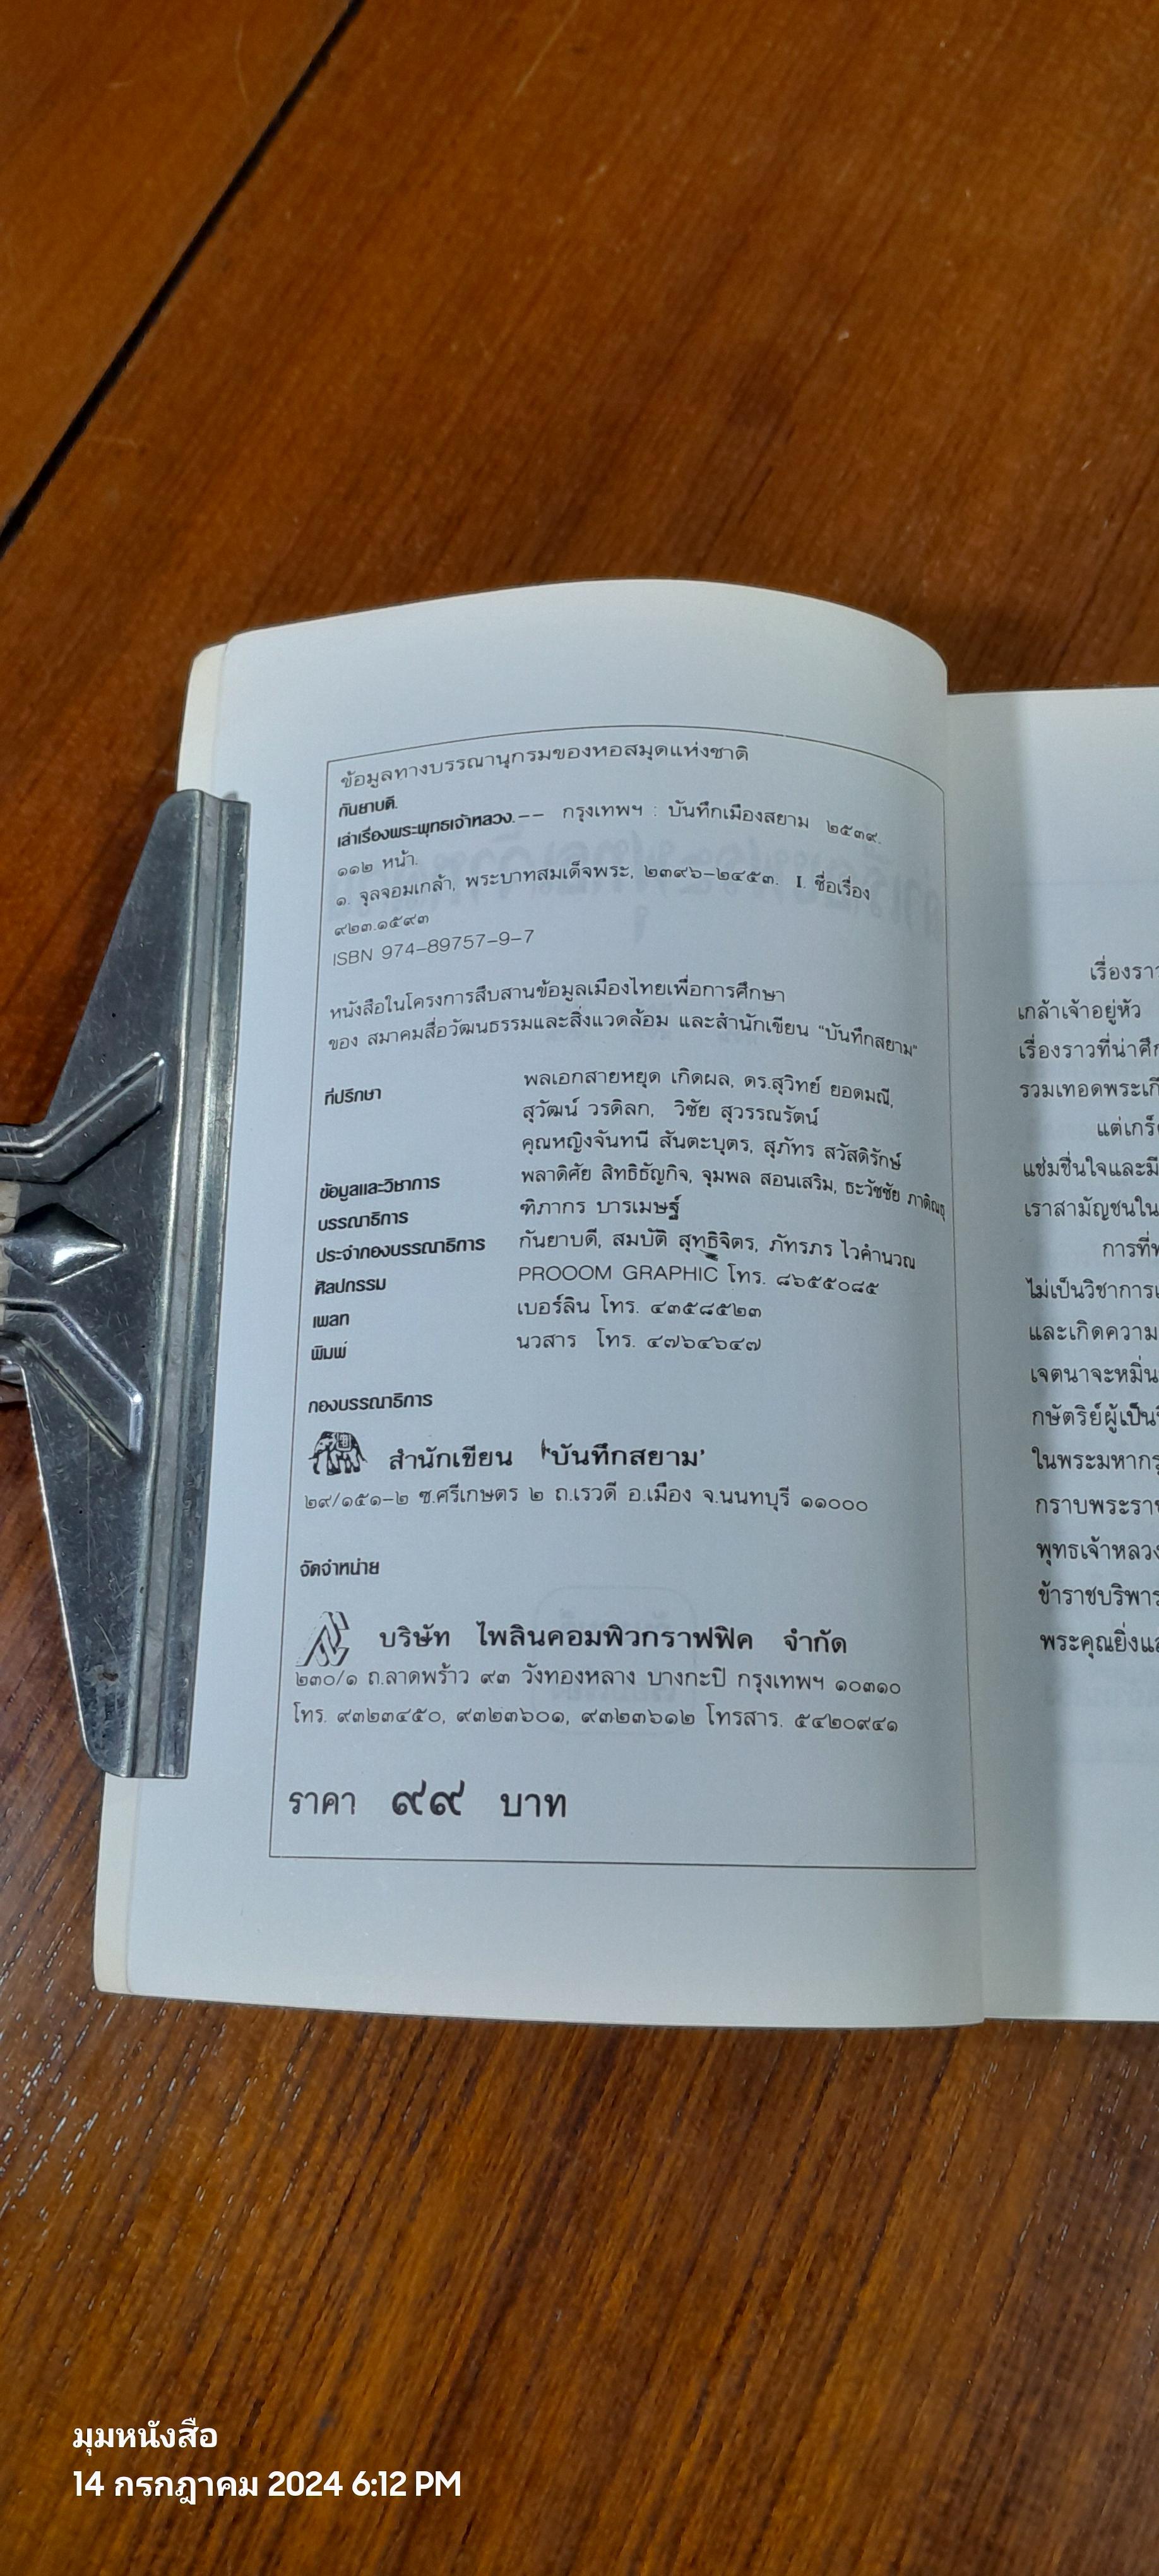 ข้อมูลทางบรรณานุกรมของหอสมุดแห่งชาติ
กันยาบดี.
เล่าเรื่องพระพุทธเจ้าหลวง.-- กรุงเทพฯ : บันทึกเมืองสยาม ๒๕๓๙.
๑๑๒ หน้า.
๑. จุลจอมเกล้า, พระบาทสมเด็จพระ, ๒๓๙๖-๒๔๕๓. I. ชื่อเรื่อง
๙๒๓.๑๕๙๓
ISBN 974-89757-9-7
หนังสือในโครงการสืบสานข้อมูลเมืองไทยเพื่อการศึกษา
ของ สมาคมสื่อวัฒนธรรมและสิ่งแวดล้อม และสำนักเขียน "บันทึกสยาม"
ที่ปรึกษา พลเอกสายหยุด เกิดผล, ดร.สุวิทย์ ยอดมณี,
สุวัฒน์ วรดิลก, วิชัย สุวรรณรัตน์
คุณหญิงจันทนี สันตะบุตร, สุภัทร สวัสดิรักษ์
ข้อมูลและวิชาการ พลาดิศัย สิทธิธัญกิจ, จุมพล สอนเสริม, ธะวัชชัย
บรรณาธิการ ทิภากร บารเมษฐ์
ประจำกองบรรณาธิการ กันยาบดี, สมบัติ สุทธิจิตร, ภัทรภร ไวคำนวณ
ศิลปกรรม PROOOM GRAPHIC โทร. ๘๖๕๕๐๘๕
เพลท เบอร์ลิน โทร. ๔๓๕๘๕๒๓
พิมพ์ นวสาร โทร. ๔๗๖๔๖๔๗
กองบรรณาธิการ
สำนักเขียน 'บันทึกสยาม'
๒๙/๑๕๑-๒ ซ.ศรีเกษตร ๒ ถ.เรวดี อ.เมือง จ.นนทบุรี ๑๑๐๐๐
จัดจำหน่าย
บริษัท ไพลินคอมพิวกราฟฟิค จำกัด
๒๓๐/๑ ถ.ลาดพร้าว ๙๓ วังทองหลาง บางกะปิ กรุงเทพฯ ๑๐๓๑๐
โทร. ๙๓๒๓๔๕๐, ๙๓๒๓๖๐๑, ๙๓๒๓๖๑๒ โทรสาร. ๕๔๒๐๙๔๑
ราคา ๙๙ บาท
เรื่องราว
เกล้าเจ้าอยู่หัว
เรื่องราวที่น่าศึก
รวมเทอดพระเกี
แต่เกร็ด
แช่มชื่นใจและมี
เราสามัญชนใน
การที่
ไม่เป็นวิชาการ
และเกิดความ
เจตนาจะหมิ่น
กษัตริย์ผู้เป็น
ในพระมหากรุ
กราบพระรา
พุทธเจ้าหลวง
ข้าราชบริพาร
พระคุณยิ่งแล
มุมหนังสือ
14 กรกฎาคม 2024 6:12 PM